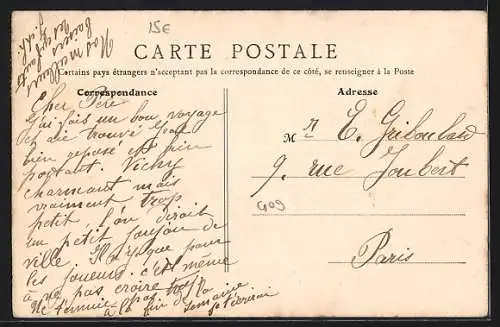 15E
Nos meilleurs
baisers
CARTE POSTALE
Certains pays étrangers n'acceptant pas la correspondance de ce côté, se renseigner à la Poste
Correspondance
Adresse
Cher Père
J'ai fais un bon voyage
et ai trouvé
bien reposé et bien
portant. Vichy
charmant mais
vraiment trop
petit l'on dirait
un petit joujou de
ville Il n'y a que pour
les joueurs c'est même
à ne pas croire
Ne t'ennuie pas trop
à la fin de la
semaine
je t'écrirai
M r E. Griboulard
9. rue Joubert
G09
Paris